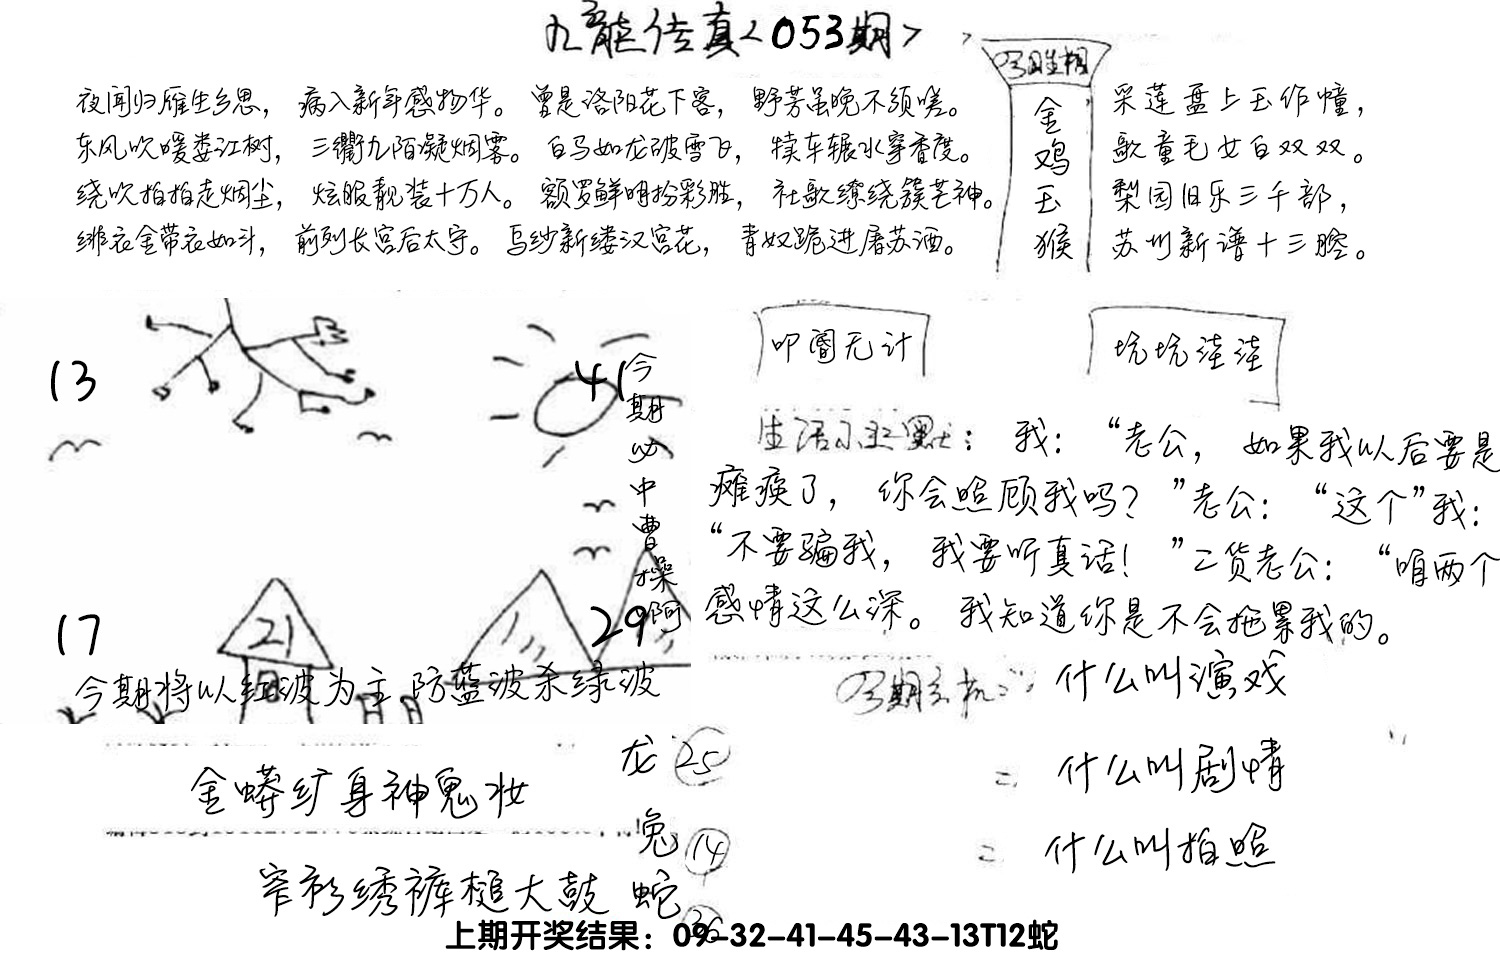 九龙传真<053期>
夜闻归雁生乡思，病入新年感物华。曾是洛阳花下客，野芳虽晚不须嗟。
东风吹暖娄江树，三衢九陌凝烟雾。白马如龙破雪飞，犊车辗水穿香度。
绕吹拍拍走烟尘，炫服靓装十万人。额罗鲜明扮彩胜，社歌缭绕簇芒神。
绯衣金带衣如斗，前列长宫后太守。乌纱新缕汉宫花，青奴跪进屠苏酒。
金
鸡
玉
猴
采莲盘上玉作幢，
歌童毛女白双双。
梨园旧乐三千部，
苏州新谱十三腔。
13
41
今期必中曹操啊
17
21
29
今期将以红波为主防蓝波杀绿波
叩阍无计
坑坑洼洼
我：“老公，如果我以后要是
瘫痪了，你会照顾我吗？”老公：“这个”我：
“不要骗我，我要听真话！”二货老公：“咱两个
感情这么深。我知道你是不会拖累我的。
什么叫演戏
什么叫剧情
什么叫拍照
金蟒纩身神鬼妆
窄衫绣裤槌大鼓
龙 25
兔 14
蛇 36
上期开奖结果：09-32-41-45-43-13T12蛇